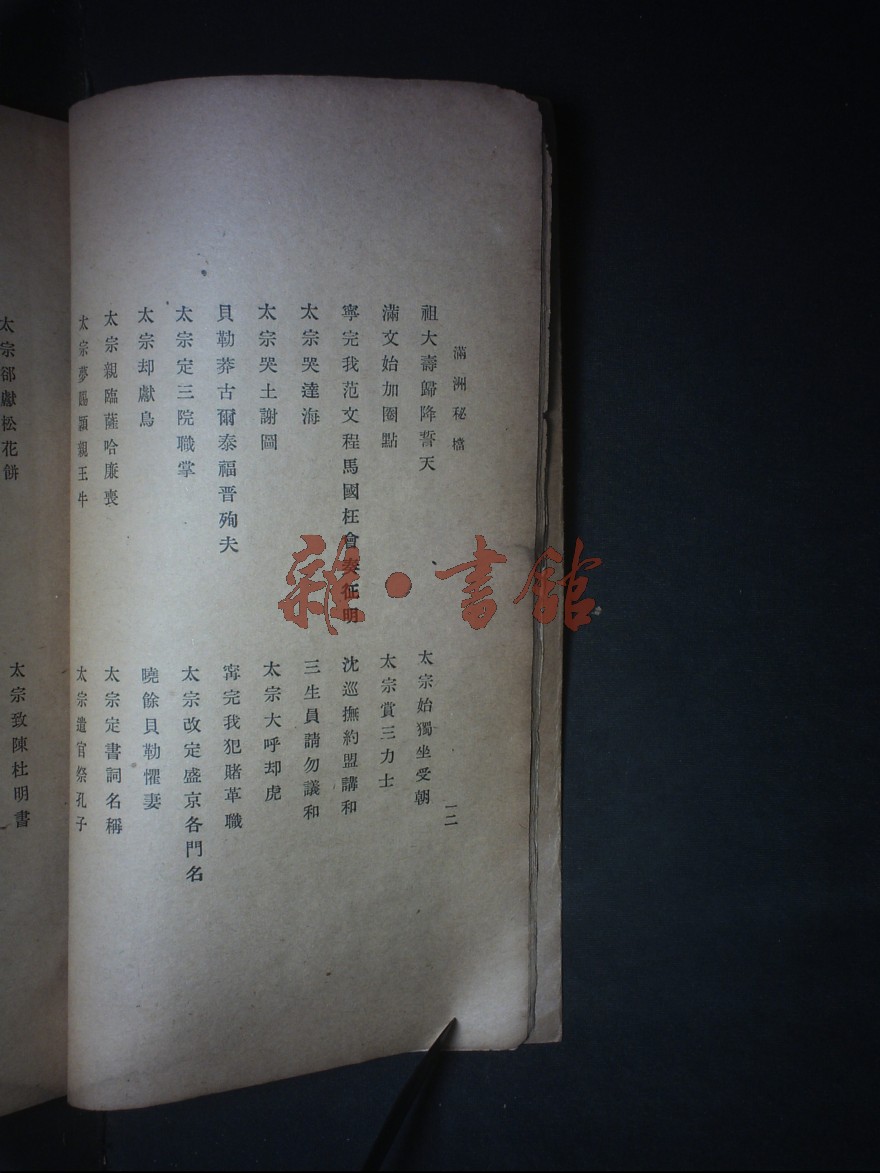 滿洲秘檔
一二
祖大壽歸降誓天
太宗始獨坐受朝
滿文始加圈點
太宗賞三力士
寧完我范文程馬國柱會奏征明
沈巡撫約盟講和
太宗哭達海
三生員請勿議和
太宗哭土謝圖
太宗大呼却虎
貝勒莽古爾泰福晋殉夫
寗完我犯賭革職
太宗定三院職掌
太宗改定盛京各門名
太宗却獻鳥
曉餘貝勒懼妻
太宗親臨薩哈廉喪
太宗定書詞名稱
太宗夢賜潁親王牛
太宗遣官祭孔子
太宗郤獻松花餅
太宗致陳杜明書
雜·書館